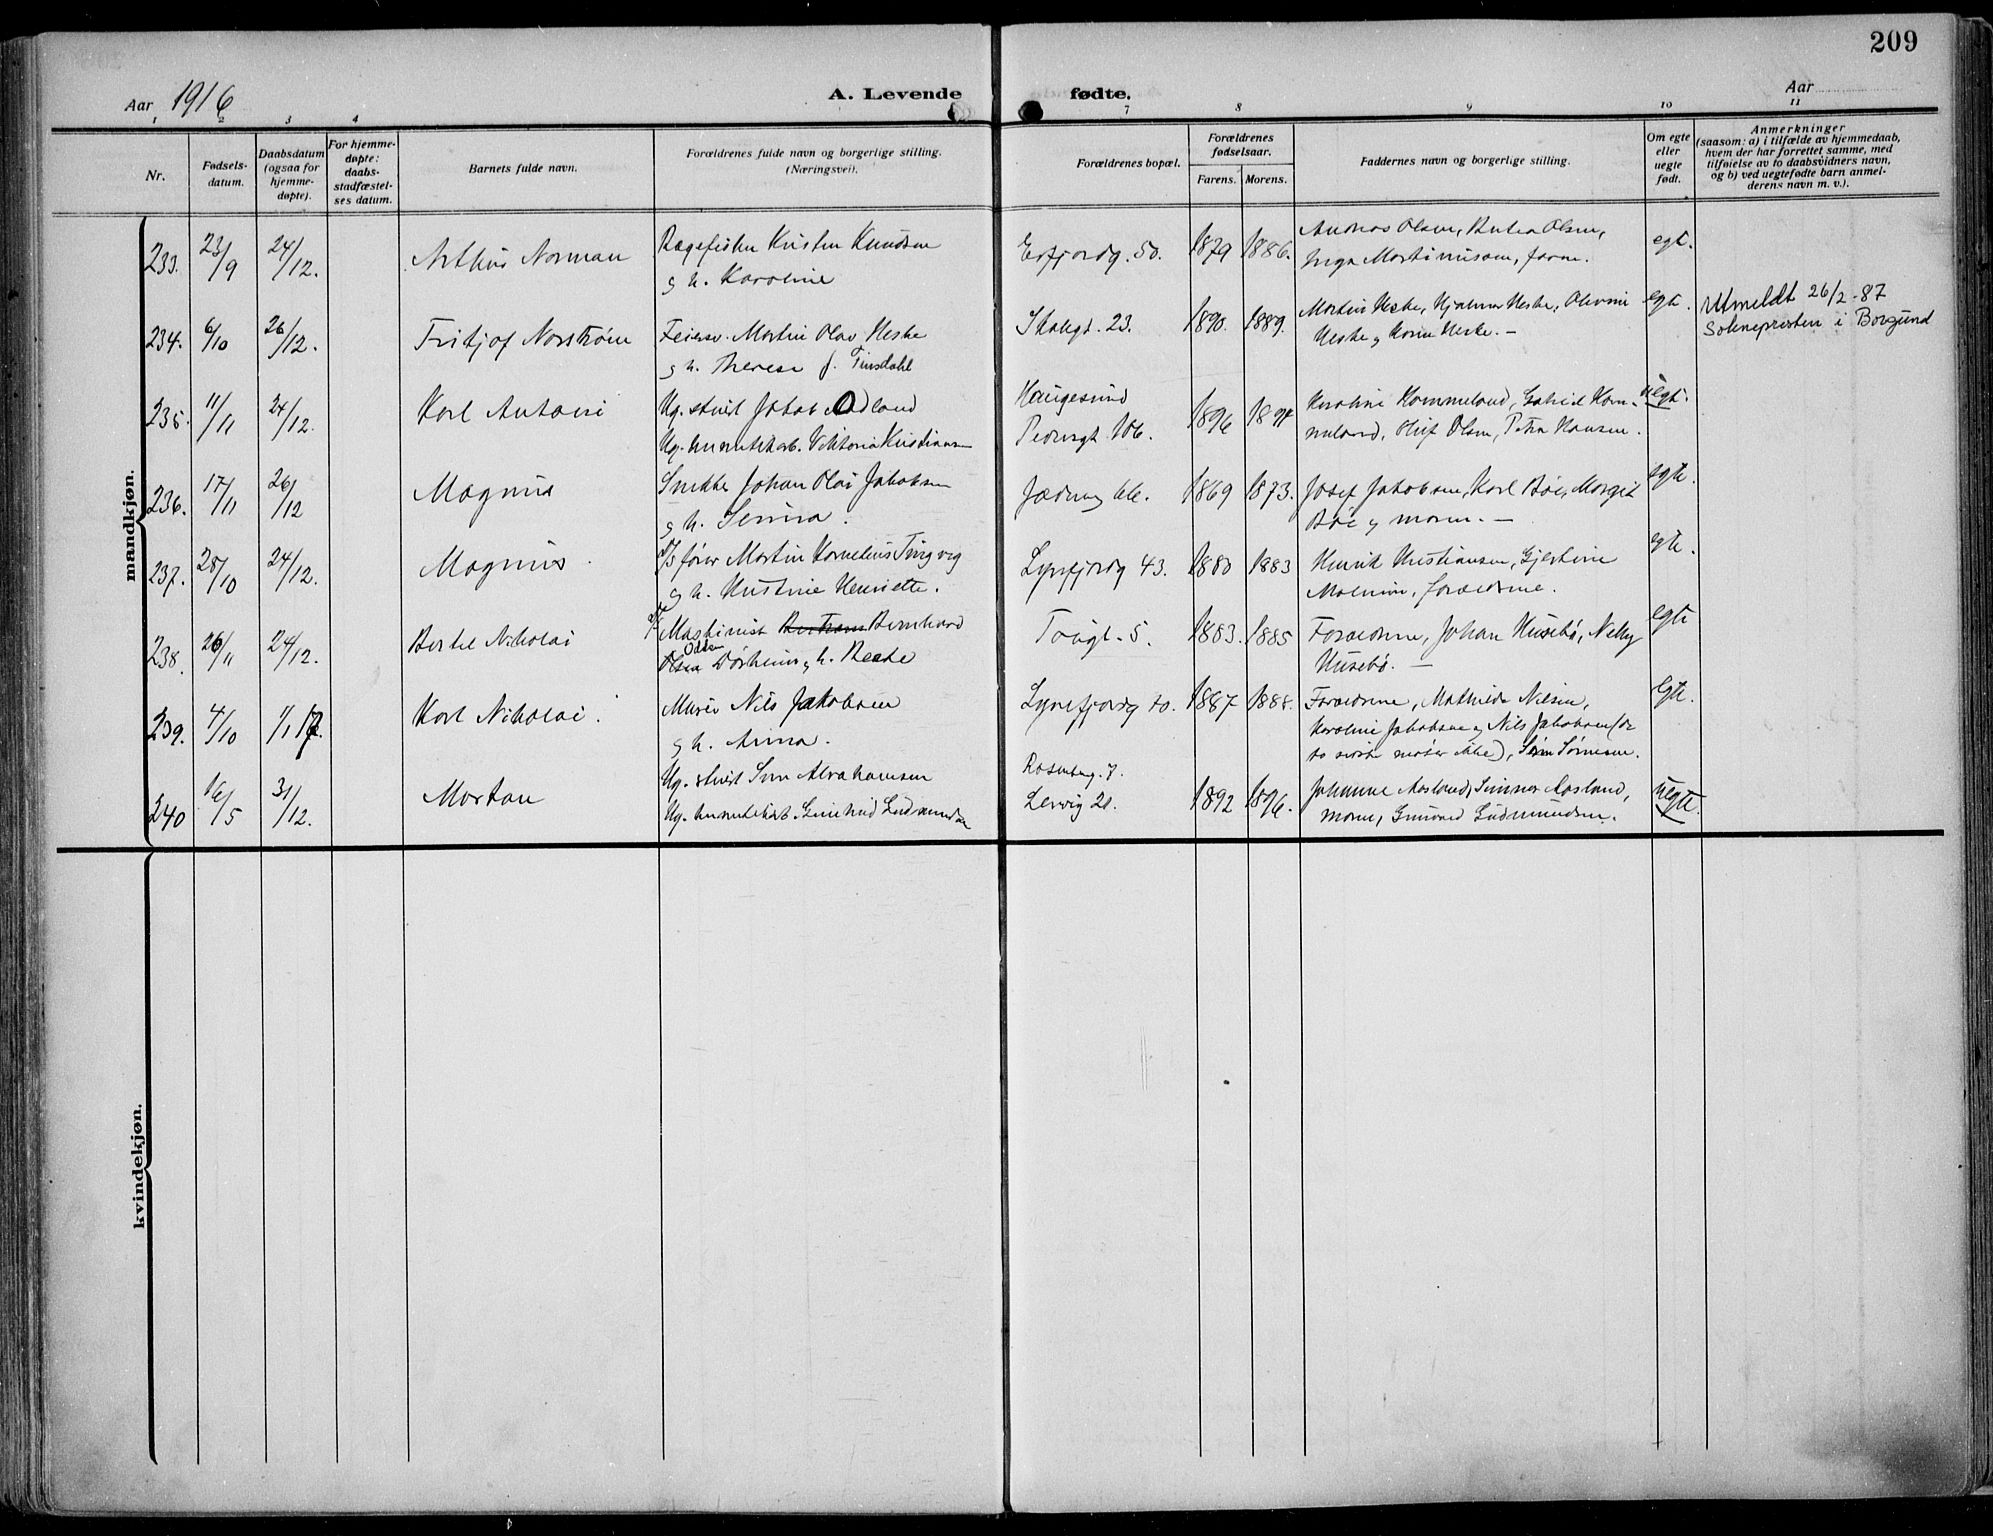 209
Aar 1916
A. Levende
fødte.
Aar
1 2 3 4 7 8 9 10 11
Nr.
Fødsels-
datum.
Daabsdatum
(ogsaa for
hjemme-
døpte).
For hjemme-
døpte:
daabs-
stadfæstel-
ses datum.
Barnets fulde navn.
Forældrenes fulde navn og borgerlige stilling.
(Næringsvei).
Forældrenes bopæl.
Forældrenes
fødselsaar.
Farens. Morens.
Faddernes navn og borgerlige stilling.
Om egte
eller
uegte
født.
Anmerkninger
(saasom: a) i tilfælde av hjemmedaab,
hvem der har forrettet samme, med
tilføielse av to daabsvidners navn,
og b) ved uegtefødte barn anmel-
derens navn m. v.).
mandkjøn.
233. 23/9 24/12. Arthur Norman
Kristen Knudsen
og h. Karoline
Erfjordg. 50. 1879 1886.
Andreas Olsen, Olsen,
Inga Martinusen, faren.
egt.
234. 6/10 26/12. Fritjof Norstrøm
Feiersv. Martin Olav Heske
og h. Therese f. Tinsdahl
Skolegt. 23. 1890. 1889.
Martin Heske, Hjalmar Heske,
Heske og Heske. —
egte.
Utmeldt 26/2-87
Soknepresten i Borgund
235. 11/11 24/12. Karl Antoni
Ug. Jakob Adland
Ug. Viktoria Kristiansen
Haugesund
Pedersgt. 106. 1896
Karoline Hommeland, Hom-
meland, Oluf Olsen, Petra Hansen.
uegt.
236. 17/11 26/12 Magnus
Snekker Johan Olai Jakobsen
og h. Serina.
66. 1869 1873.
Josef Jakobsen, Karl Bøe, Margit
Bøe og moren. —
egte.
237. 28/10 24/12. Magnus.
D/S fører Martin Kornelius Tingvig
og h. Kristine Henriette.
Lysefjordg 43. 1880 1883
Henrik Kristiansen, Gjertine
forældrene.
egte.
238. 26/11 24/12. Bertel Nikolai
Maskinist Bertram Bernhard
Odden
Olsen Dørheim og h. Beate
5. 1883. 1885
Forældrene, Johan Husebø, Nelly
Husebø. —
egte
239. 4/10 1/1 17. Karl Nikolai.
Murer Nils Jakobsen
og h. Anna.
Lysefjordg 40. 1887 1888.
Forældrene, Mathilde Nilsen,
Karoline Jakobsen og Nils Jakobsen (de
to sidste møter ikke),
egte.
240 16/5 31/12. Morton
Ug. Abrahamsen
Ug. Gudmundsen
Rosenberg. 7.
Lervig 20. 1892 1896.
Johanne Aasland, Aasland,
moren, Gudmundsen.
uegte.
kvindekjøn.